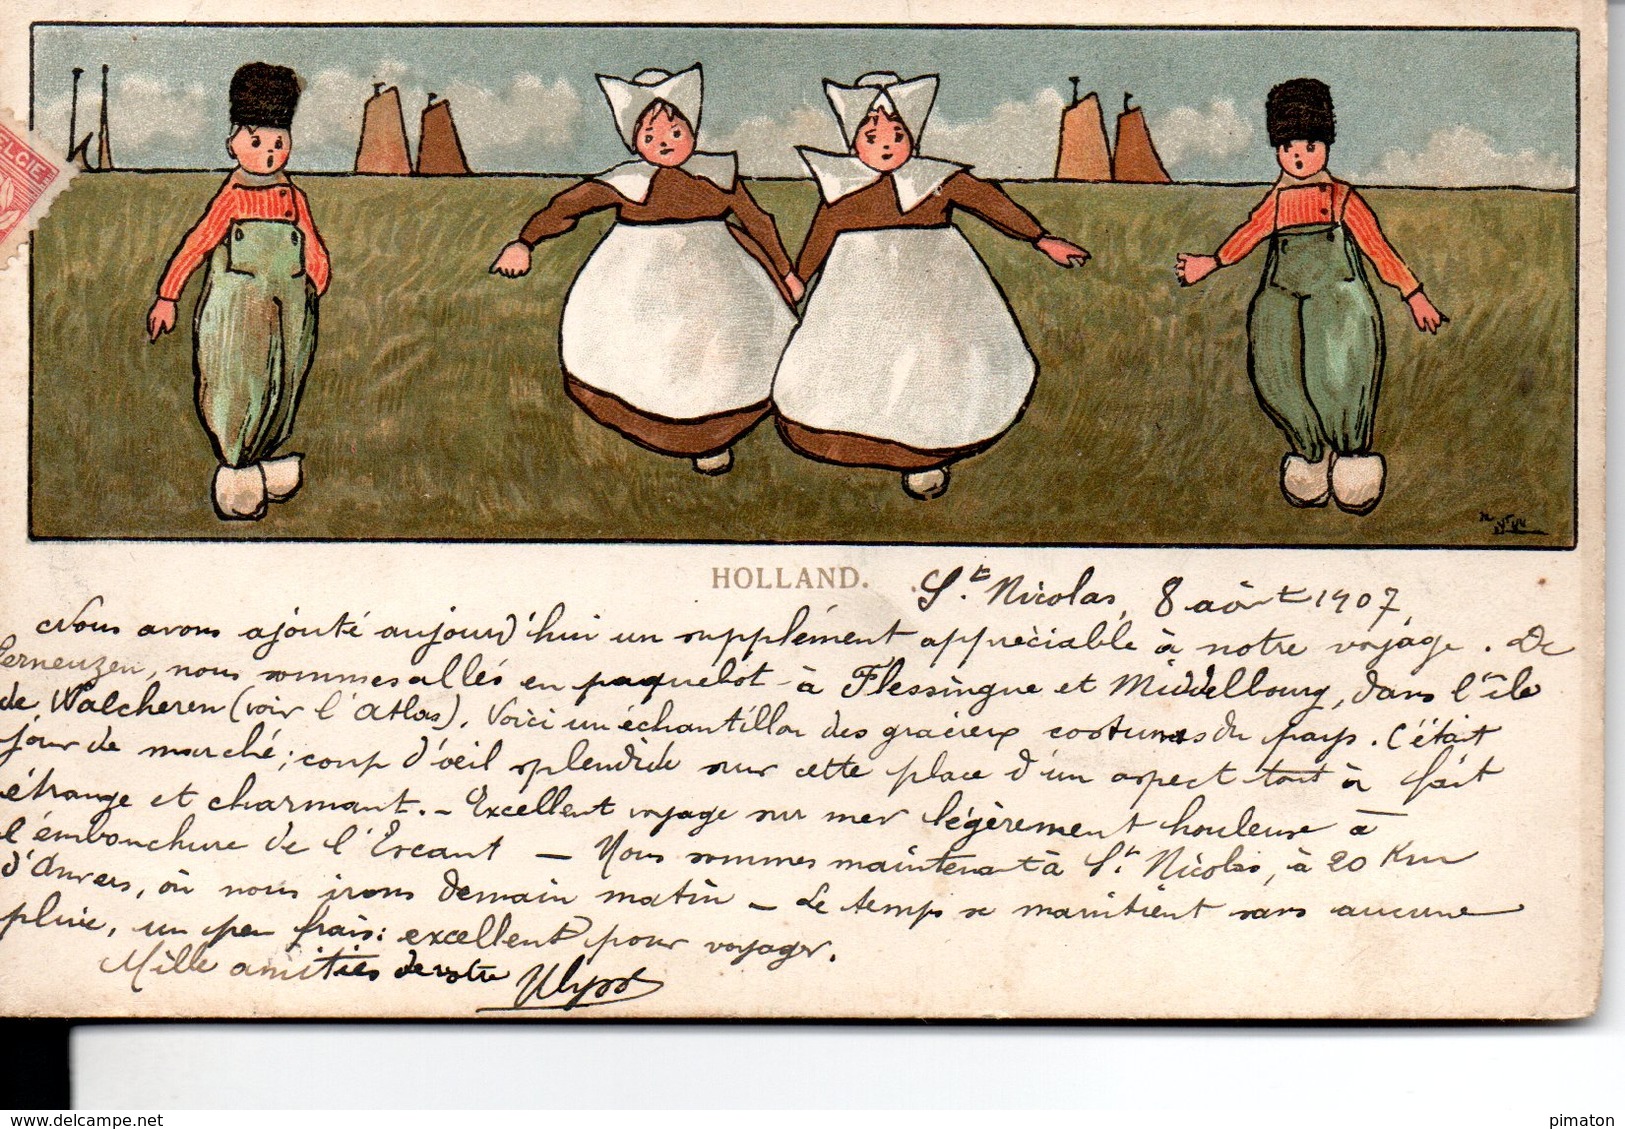 ELGIE
HOLLAND.
St. Nicolas, 8 août 1907
Nous avons ajouté aujourd'hui un supplément appréciable à notre voyage. De
Terneuzen, nous sommes allés en paquebot à Flessingue et Middelbourg, dans l'île
de Walcheren (voir l'atlas). Voici un échantillon des gracieux costumes du pays. C'était
jour de marché; coup d'oeil splendide sur cette place d'un aspect tout à fait
étrange et charmant. - Excellent voyage sur mer légèrement houleuse à
l'embouchure de l'Escaut — Nous sommes maintenant à St. Nicolas, à 20 Km
d'Anvers, où nous irons demain matin — Le temps se maintient sans aucune
pluie, un peu frais: excellent pour voyager.
Mille amitiés de votre
delcampe.net
pimaton